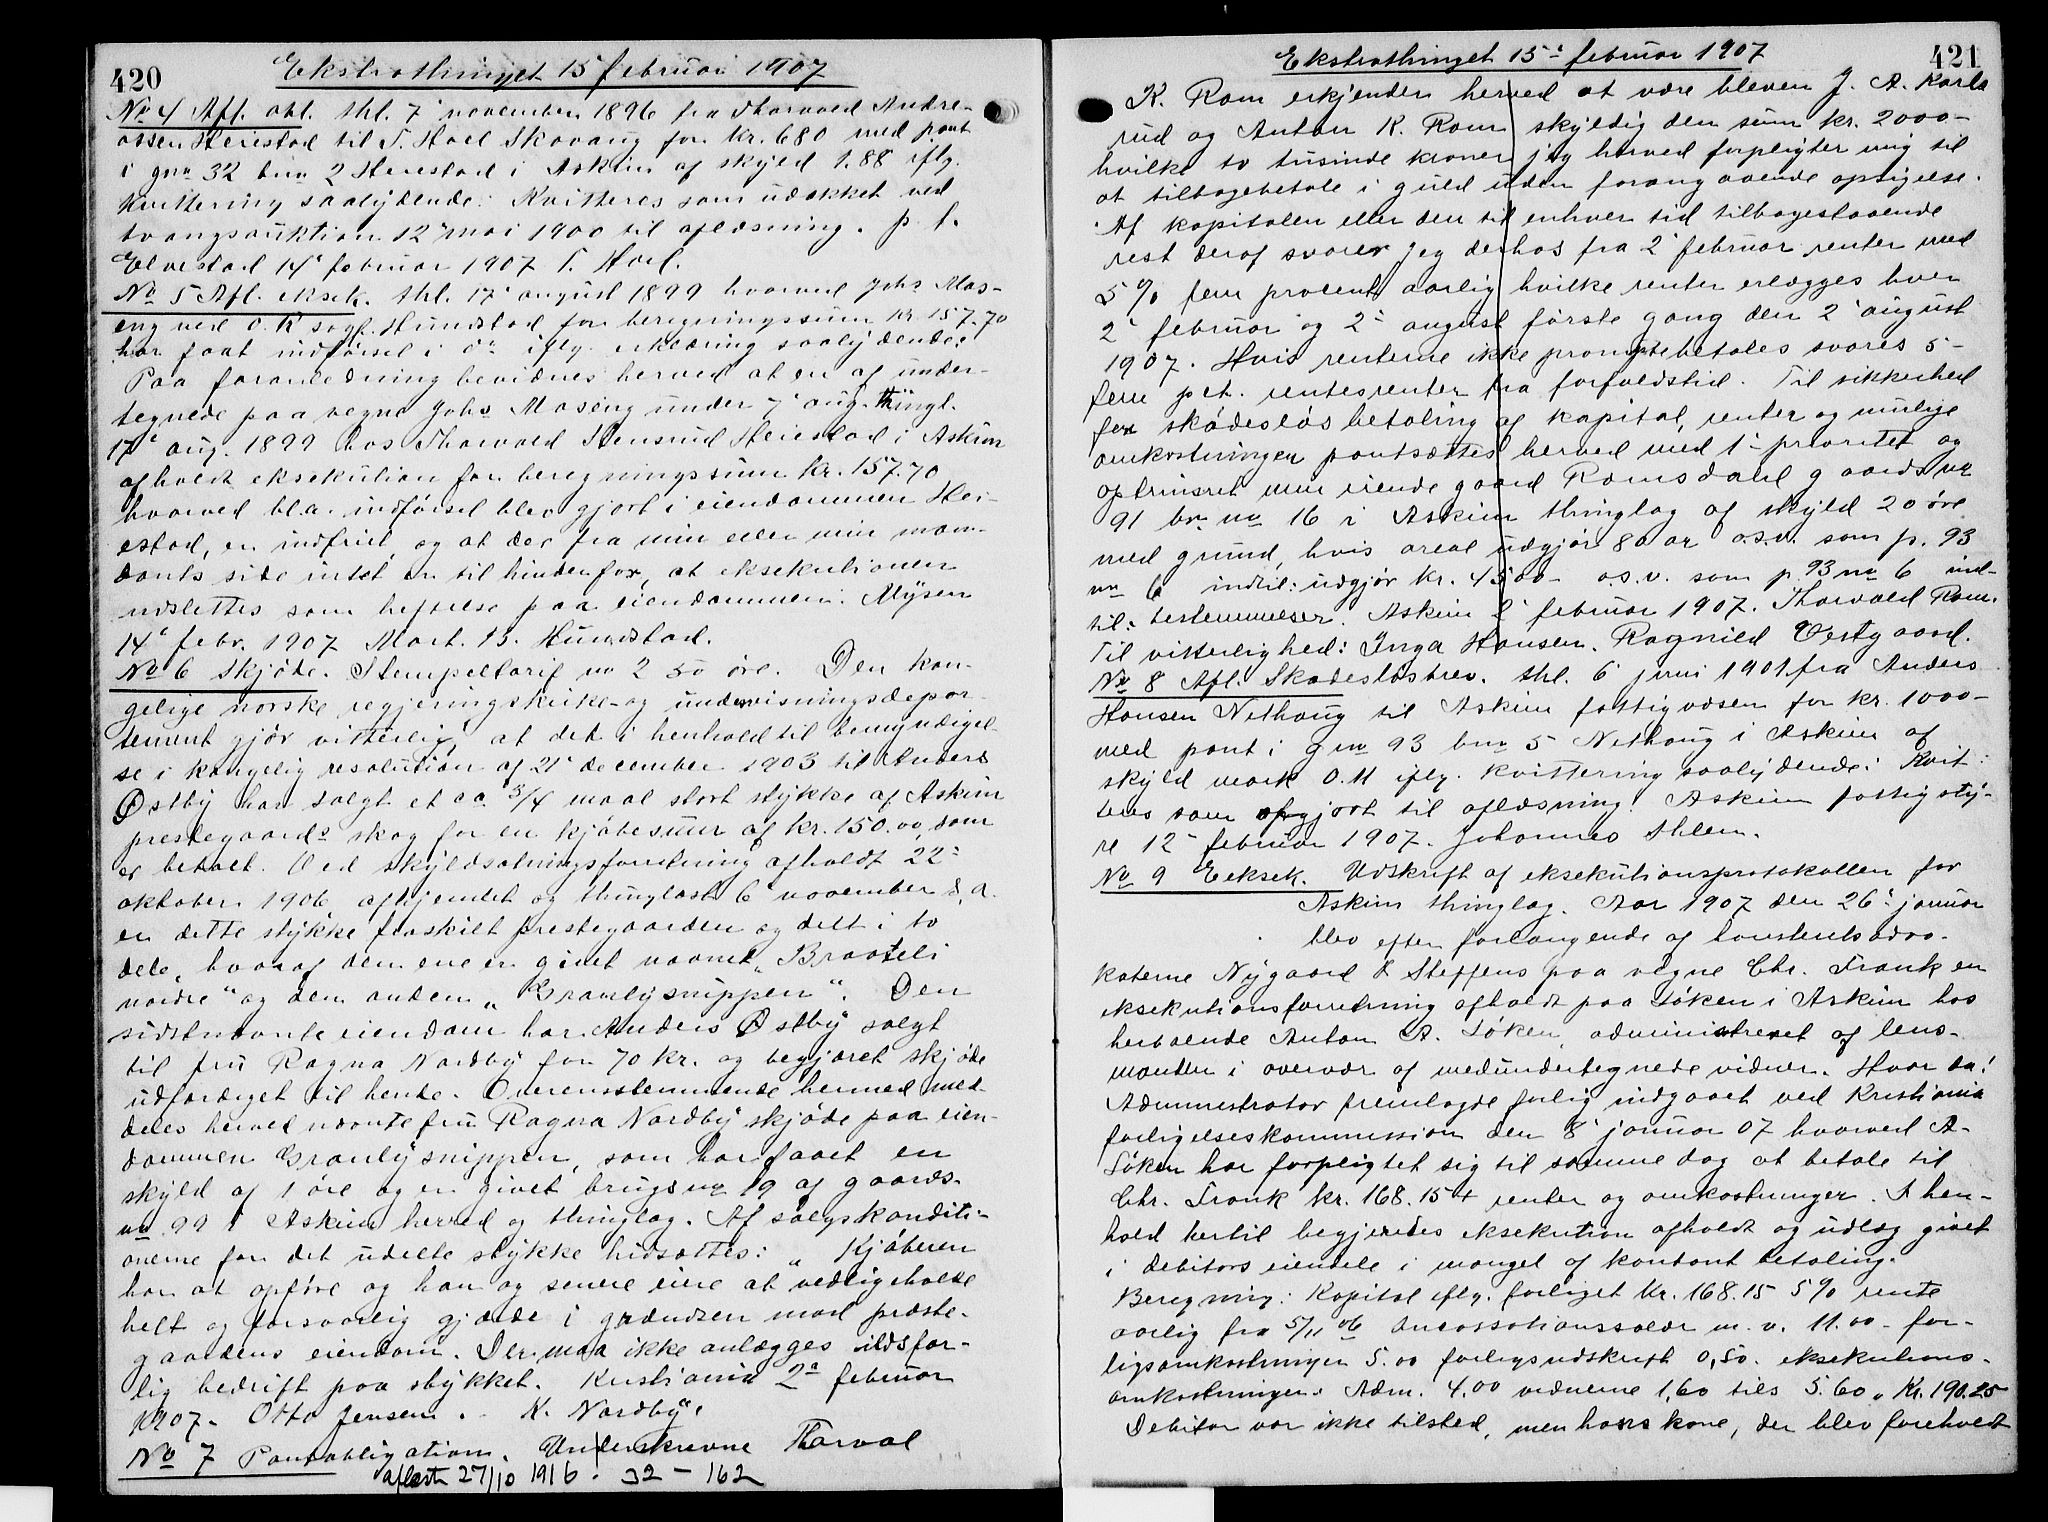 420
Ekstrathinget 15' februar 1907
No 4 Afl. obl. thl. 7' november 1896 fra Thorvald Andre-
assen Heiestad til T. Hoel Skovaug for kr. 680 med pant
i gno 32 bno 2 Heiestad i Askim af skyld 1.88 iflg.
kvittering saalydende: Kvitteres som udækket ved
tvangsauktion 12' mai 1900 til aflæsning. p. t.
Elvestad 14' februar 1907 T. Hoel.
No 5 Afl. eksek. thl. 17' august 1899 hvorved Johs Mas-
eng ved O.R sagf. Hundstad for beregningssum kr. 157.70
har faat indførsel i do iflg. erklæring saalydende:
Paa foranledning bevidnes herved at en af under-
tegnede paa vegne Johs Maseng under 7' aug. thingl.
17' aug. 1899 hos Thorvald Stensrud Heiestad i Askim
afholdt eksekution for beregningssum kr. 157.70
hvorved bl.a. indførsel blev gjort i eiendommen Hei-
estad, er indfriet, og at der fra min eller min man-
dants side intet er til hinder for, at eksekutionen
udslettes som heftelse paa eiendommen. Mysen
14' febr. 1907 Mart. B. Hundstad.
No 6 Skjøde. Stempeltarif no 2 50 øre. Den kon-
gelige norske regjerings kirke- og undervisningsdepar-
tement gjør vitterlig, at det i henhold til bemyndigel-
se i kongelig resolution af 21' december 1903 til Anders
Østby har solgt et ca. 3/4 maal stort stykke af Askim
prestegaards skog for en kjøbesum af kr. 150.00, som
er betalt. Ved skyldsætningsforretning afholdt 22'
oktober 1906 afhjemlet og thinglæst 6' november s.a.
er dette stykke fraskilt prestegaarden og delt i to
dele, hvoraf den ene er givet navnet "Braateli
nordre" og den anden "Granlysnippen". Den
sidstnævnte eiendom har Anders Østby solgt
til fru Ragna Nordby for 70 kr. og begjæret skjøde
udfærdiget til hende. Overensstemmende hermed med-
deles herved nævnte fru Ragna Nordby skjøde paa eien-
dommen Granlysnippen, som har faaet en
skyld af 1 øre og er givet brugsno 19 af gaards-
no 99 i Askim herred og thinglag. Af salgskonditi-
onerne for det udelte stykke hidsættes: "Kjøberen
har at opføre og han og senere eiere at vedligeholde
helt og forsvarlig gjærde i grændsen mod præste-
gaardens eiendom. Der maa ikke anlægges ildsfar-
lig bedrift paa stykket. Kristiania 2' februar
1907. Otto Jensen. K. Nordby.
No 7 Pantobligation. Underskrevne Thorval
aflæst 27/10 1916. 32 - 162
421
Ekstrathinget 15' februar 1907
K. Rom erkjender herved at være bleven J. A. Karls
rud og Anton K. Rom skyldig den sum kr. 2000-
hvilke to tusinde kroner jeg herved forpligter mig til
at tilbagebetale i guld uden forangaaende opsigelse.
Af kapitalen eller den til enhver tid tilbagestaaende
rest deraf svarer jeg derhos fra 2' februar renter med
5 % fem procent aarlig hvilke renter erlægges hver
2' februar og 2' august første gang den 2' august
1907. Hvis renterne ikke promptebetales svares 5-
fem pct. rentesrenter fra forfaldstid. Til sikkerhed
for skadesløs betaling af kapital, renter og mulige
omkostninger pantsættes herved med 1' prioritet og
optrinsret min eiende gaard Romsdahl gaards no
91 br. no 16 i Askim thinglag af skyld 20 øre
med grund, hvis areal udgjør 80 ar o.s.v. som p. 93
no 6 indtil: udgjør kr. 4500- o.s.v. som p. 93 no 6 ind-
til: bestemmelser. Askim 2' februar 1907. Thorvald Rom.
Til vitterlighed: Inga Hansen. Ragnild Vestgaard.
No 8 Afl. Skadesløsbrev. thl. 6' juni 1901 fra Anders
Hansen Nethaug til Askim fattigvæsen for kr. 1000-
med pant i gno 93 bno 5 Nethaug i Askim af
skyld mark 0.11 iflg. kvittering saalydende: Kvit-
teres som opgjort til aflæsning. Askim fattigsty-
re 12' februar 1907. Johannes Ihlen.
No 9 Eeksek. Udskrift af eksekutionsprotokollen for
Askim thinglag. Aar 1907 den 26' januar
blev efter forlangende af høiesteretsadvo-
katerne Nygaard & Steffens paa vegne Chr. Frank en
eksekutionsforretning afholdt paa Løken i Askim hos
herboende Anton A. Løken, administreret af lens-
manden i overvær af medundertegnede vidner. Hvor da:
Administrator fremlagde forlig indgaaet ved Kristiania
forligelseskommission den 8' januar 07 hvorved A.
Løken har forpligtet sig til samme dag at betale til
Chr. Frank kr. 168.15 + renter og omkostninger. I hen-
hold hertil begjæredes eksekution afholdt og udlæg givet
i debitors eiendele i mangel af kontant betaling.
Beregning: Kapital iflg. forliget kr. 168.15 5% rente
aarlig fra 5/11 06 incassationssalær m.v. 11.00 - for-
ligsomkostninger 5.00 forligsudskrift 0,50. eksekutions-
omkostninger: Adm. 4,00 vidnerne 1,60 tils 5.60. Kr. 190.25
Debitor var ikke tilsted, men hans kone, der blev foreholdt